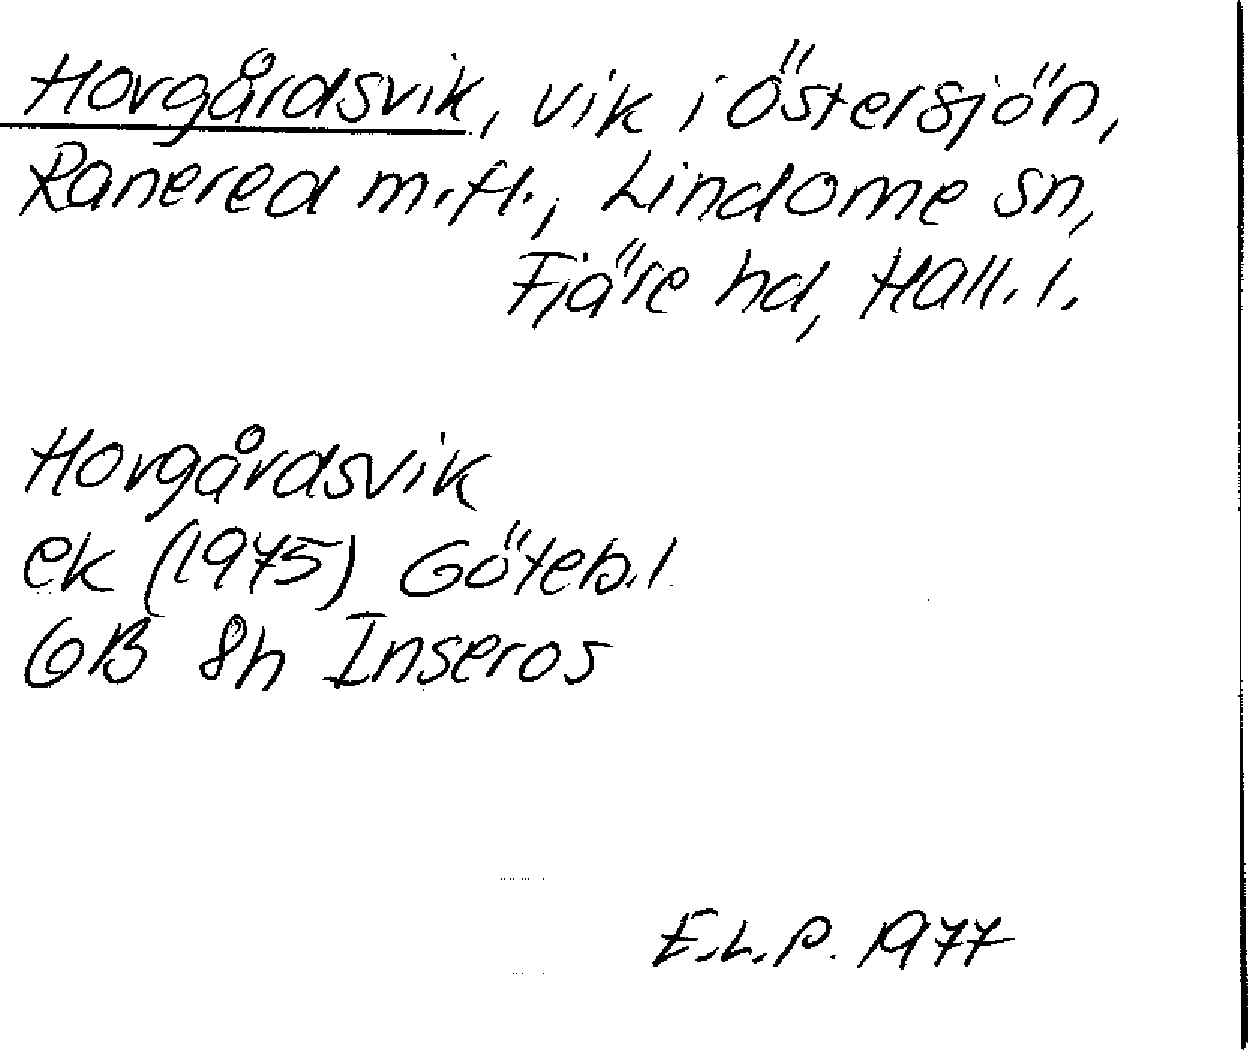 Horgårdsvik, vik i Östersjön,
Ranered m.fl., Lindome sn,
Fjäre hd, Hall. l.
Horgårdsvik
ek (1975) Göteb. l
GB 8h Inseros
E.L.P. 1977